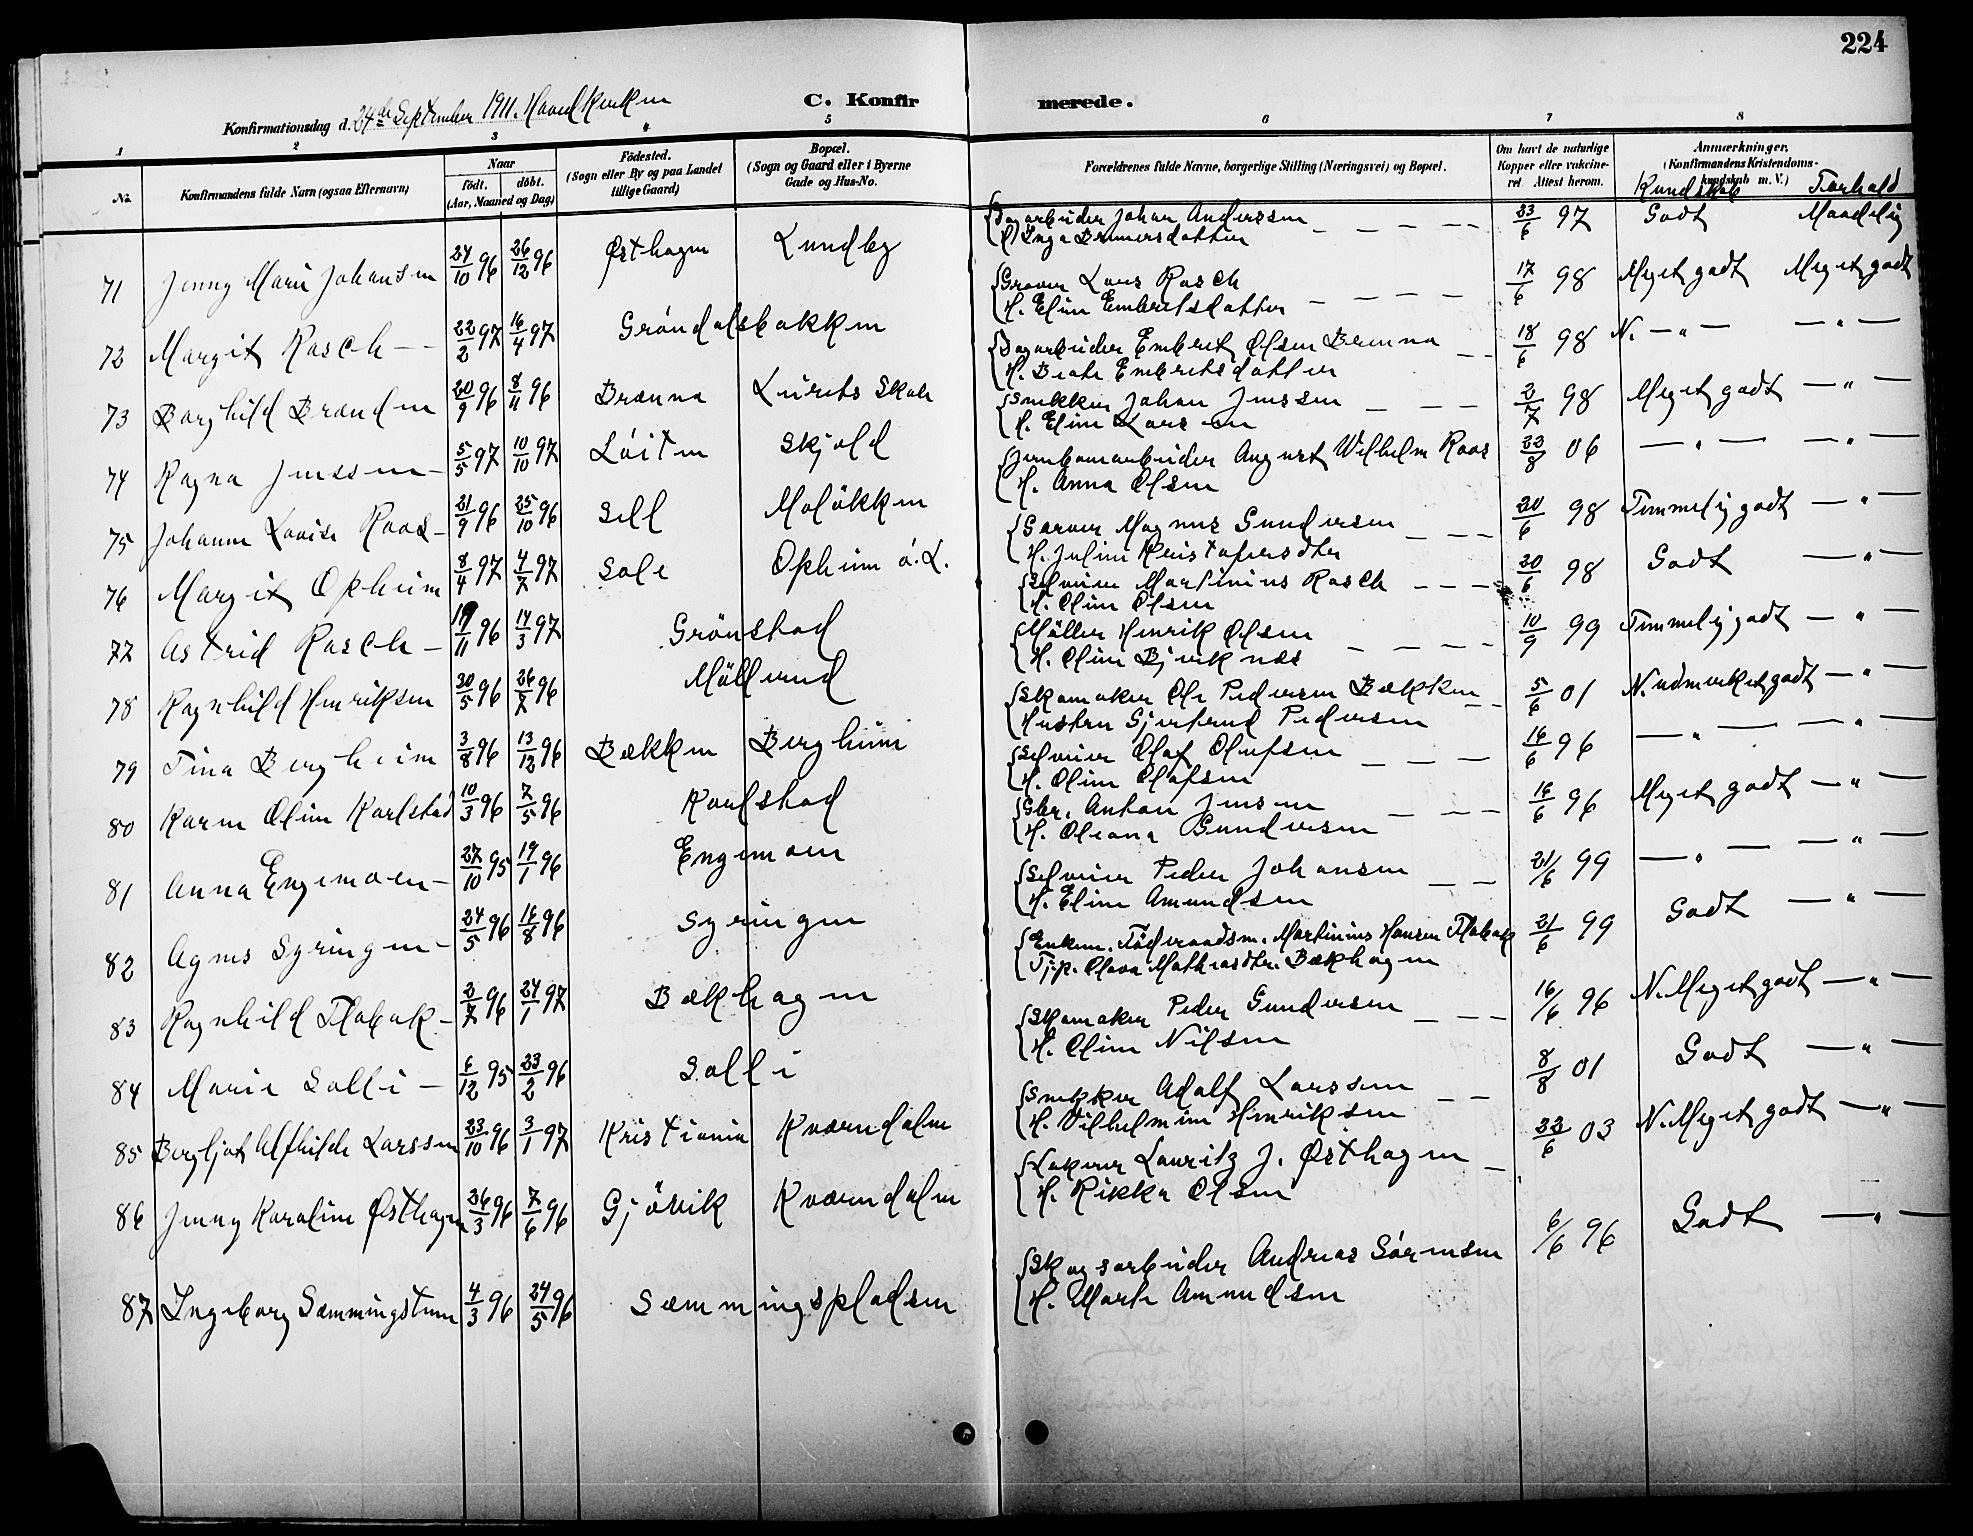 224
Konfirmationsdag d. 24de September 1911. Hovedkirken
C. Konfirmerede.
1 2 3 4 5 6 7 8
No. Konfirmandens fulde Navn (ogsaa Efternavn) Naar født. døbt. (Aar, Maaned og Dag) Fødested. (Sogn eller By og paa Landet tillige Gaard) Bopæl. (Sogn og Gaard eller i Byerne Gade og Hus-No. Forældrenes fulde Navne, borgerlige Stilling (Næringsvei) og Bopæl. Om havt de naturlige Kopper eller vakcineret. Attest herom. Anmærkninger. (Konfirmandens Kristendomskundskab m. V.) Kundskab Forhold
71 Jenny Marie Johansen 24/10 96 26/12 96 Østhagen Lundby Dagarbeider Johan Anderssen 23/6 97 Godt Maadelig
H. Inga Brunersdatter
72 Margit Rasch 22/2 97 16/4 97 Gröndalsbakken Graver Lars Rasch 17/6 98 Meget godt Meget godt
H. Eline Embretsdatter
73 Borghild Brænden 20/9 96 8/11 96 Brænna Lurets Skole Dagarbeider Embret Olsen Brenna 18/6 98 N. — " — — " —
H. Beate Embretsdatter
74 Ragna Jenssen 5/5 97 10/10 97 Löiten Skjold Snekker Johan Jenssen 2/7 98 Meget godt — " —
H. Eline Larsen
75 Johanne Lovise Roos 21/9 96 25/10 96 Sell Molökken Jernbanearbeider August Wilhelm Roos 22/8 06 — " — — " —
H. Anna Olsen
76 Margit Opheim 8/4 97 4/7 97 Sole Opheim ö. L. Garver Magnus Gundersen 20/6 98 Temmelig godt — " —
H. Juline Kristofersdtr
77 Astrid Rasch 19/11 96 14/3 97 Grönstad Selveier Martinius Rasch 20/6 98 Godt — " —
H. Oline Olsen
78 Ragnhild Henriksen 30/5 96 26/7 96 Möllerud Möller Henrik Olsen 10/9 99 Temmelig godt — "
H. Oline Bjerknæs
79 Tina Bergheim 3/8 96 13/12 96 Bækken Bergheim Skomaker Ole Pedersen Bækken 5/6 01 N. udmerket godt — "
Hustru Gjertrud Pedersen
80 Karen Oline Karlstad 10/3 96 7/5 96 Karlstad Selveier Olaf Olufsen 16/6 96 — " — — " —
H. Oline Olafsen
81 Anna Engemoen 27/10 95 19/1 96 Engemoen Gbr. Anton Jensen 16/6 96 Meget godt — " —
H. Oleana Gundersen
82 Agnes Syringen 24/5 96 16/8 96 Syringen Selveier Peder Johansen 21/6 99 — " — — " —
H. Eline Amundsen
83 Ragnhild Flobak 2/7 96 24/1 97 Bækhagen Enkem. Föderaadsm. Martinius Hansen Flobak 21/6 99 Godt — " —
Tjp. Olava Mathiasdtr. Bækhagen
84 Marie Solli 6/12 95 23/2 96 Solli Skomaker Peder Gundersen 16/6 96 N. Meget godt — " —
H. Oline Nilsen
85 Bergljot Alfhilde Larssen 23/10 96 3/1 97 Kristiania Kværndalen Snekker Adolf Larssen 8/8 01 Godt — " —
H. Vilhelmine Henriksen
86 Jenny Karoline Østhagen 26/3 96 7/6 96 Gjövik Kværndalen Lakerer Lauritz J. Østhagen 22/6 03 N. Meget godt — " —
H. Rikka Olsen
87 Ingeborg Sæmmingstuen 4/3 96 24/5 96 Sæmmingspladsen Skogsarbeider Andreas Sörensen 6/6 96 Godt — " —
H. Marte Amundsen